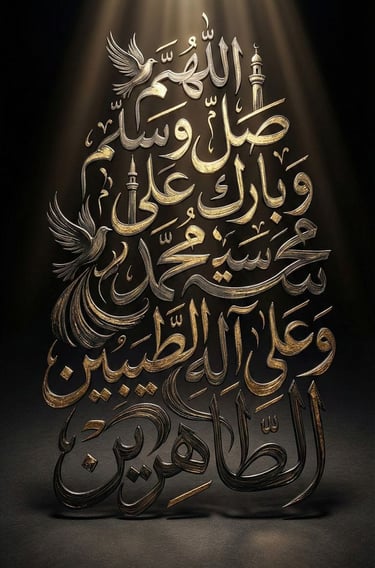 اللَّهُمَّ
صَلِّ وَسَلِّم
وَبَارِك عَلَى
مُحَمَّد
وَعَلَى آلِهِ الطَّيِّبِين
الطَّاهِرِين